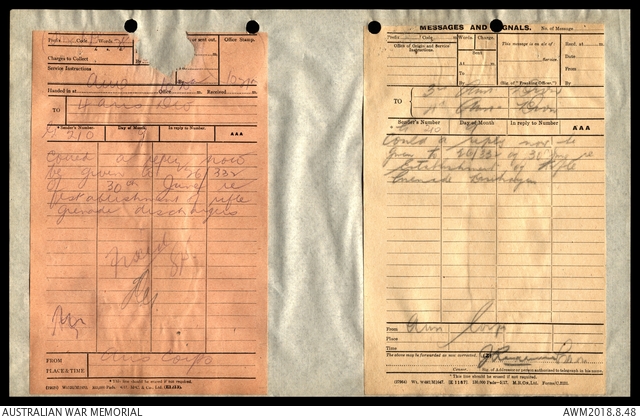 Prefix Code Words
Sent out.
Office Stamp.
Charges to Collect
Service Instructions
Aus
Handed in at Office m. Received m.
TO
4 Aus Div
*Sender's Number. Day of Month In reply to Number. AAA
G 210 9
Could a reply now
be given to 26/332
of 30th June re
establishment of rifle
grenade dischargers
FROM Aus Corps
PLACE & TIME
* This line should be erased if not required.
MESSAGES AND SIGNALS. No. of Message
Prefix Code m. Words Charge.
Office of Origin and Service Instructions.
Sent
At m.
To
By
This message is on a/c of:
Service.
(Sig. of "Franking Officer.")
Recd. at m.
Date
From
By
TO
3rd Aus Divn
4th Aus Divn
Sender's Number Day of Month In reply to Number AAA
Could a reply now be
given to 26/332 of 30th re
establishment of Rifle
Grenade Dischargers
From Aus Corps
Place
Time
The above may be forwarded as now corrected. (Z)
Censor. Sig. of Addressor or person authorised to telegraph in his name.
* This line should be erased if not required.
AUSTRALIAN WAR MEMORIAL
AWM2018.8.48